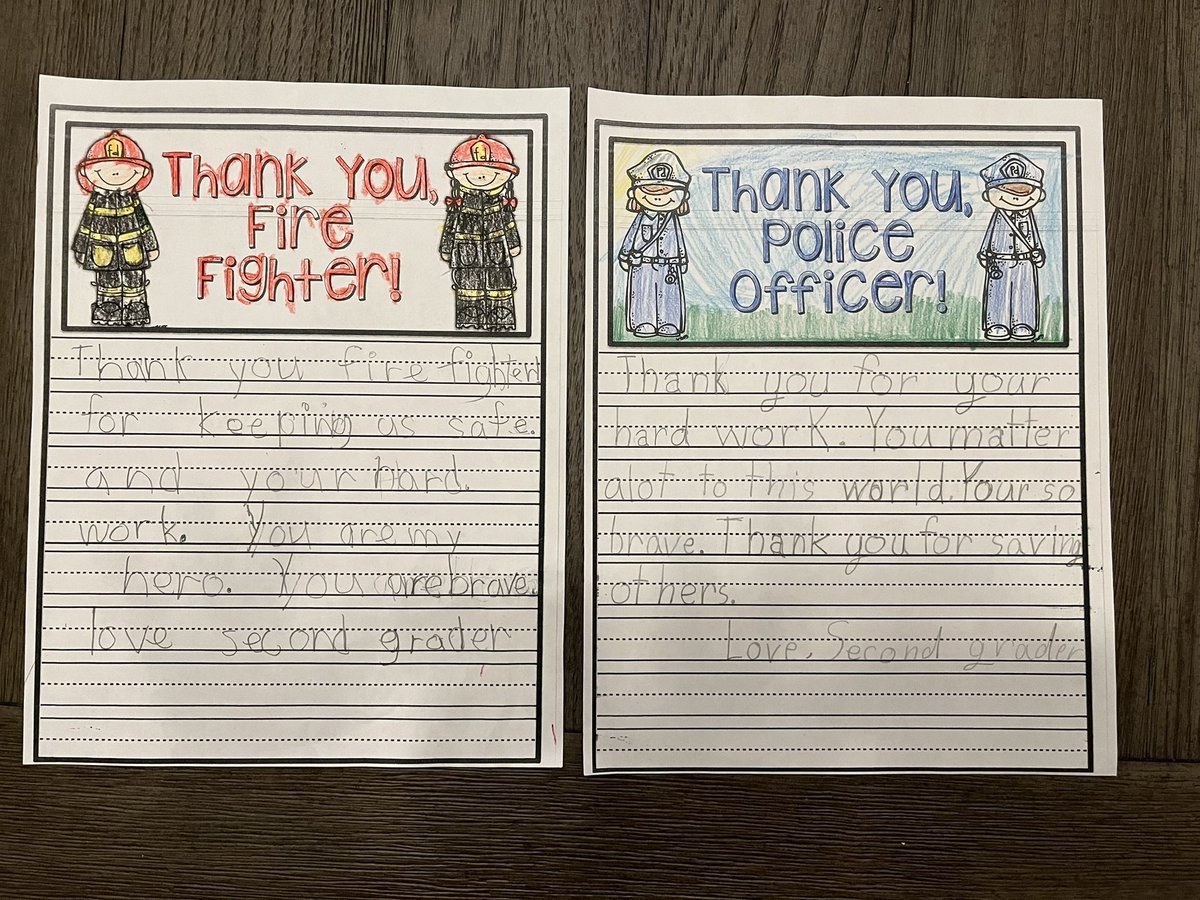 fd
fd
Thank You,
Fire
Fighter!
Thank you fire fighter
for keeping us safe.
and your hard.
work. You are my
hero. You are brave.
love second grader
Pd
Pd
Thank You,
Police
Officer!
Thank you for your
hard work. You matter
alot to this world. Your so
brave. Thank you for saving
others.
Love, Second grader